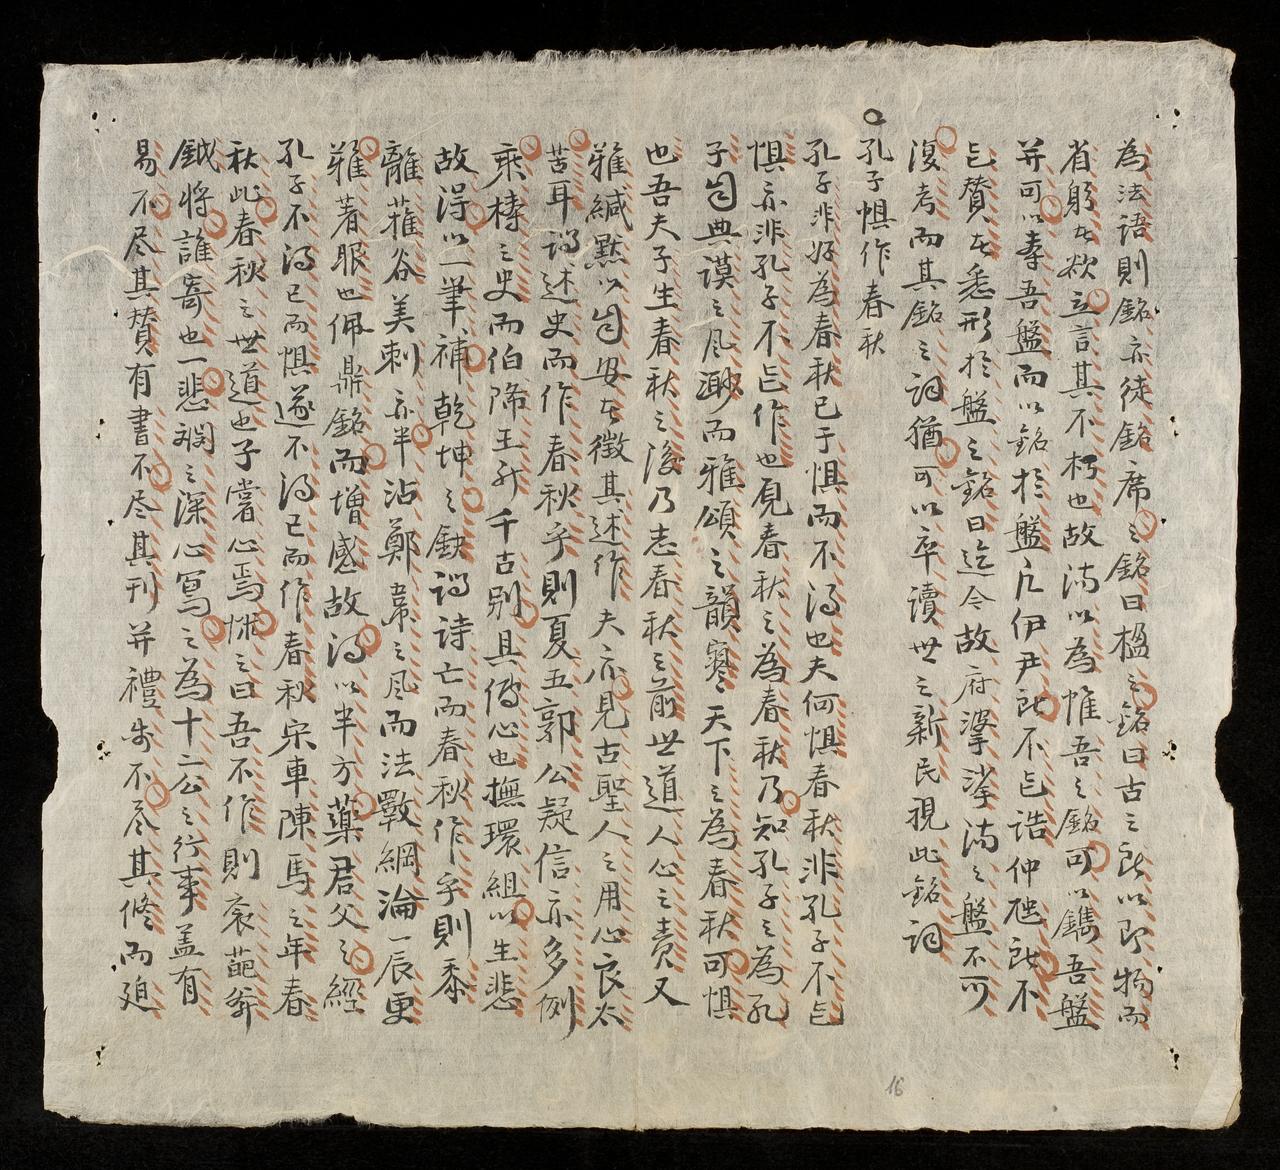 為法語則銘亦徒銘席之銘曰楹之銘曰古之所以即物而
省躬在欲立言其不朽也故湯以為惟吾之銘可以鐫吾盤
并可以壽吾盤而以銘於盤凡伊尹所不忘誥仲虺所不
忘贊在悉形於盤之銘曰迄今故府摩挲湯之盤不可
復考而其銘之詞猶可以卒讀世之新民視此銘詞
孔子惧作春秋
孔子非好為春秋已于惧而不得也夫何惧春秋非孔子不忘
惧亦非孔子不忘作也夏春秋之為春秋乃知孔子之為孔
子自典謨之風渺而雅頌之韻寥天下之為春秋可惧
也吾夫子生春秋之後乃志春秋之前世道人心之責又
雅緘默以自安在徵其述作夫亦見古聖人之用心良太
苦耳謂述史而作春秋乎則夏五郭公疑信亦多例
乘檮之史而伯降王升千古別具傳心也撫環組以生悲
故得以一筆補乾坤之缺謂詩亡而春秋作乎則黍
離蓷谷美刺亦半沾鄭衛之風而法戰綱淪一辰更
雅著服也佩鼎銘而增感故得以半方藥君父之經
孔子不得已而惧遂不得已而作春秋宋車陳馬之年春
秋此春秋之世道也子嘗心焉怵之曰吾不作則袞葩斧
鉞將誰寄也一悲憫之深心寫之為十二公之行事盖有
易不尽其贊有書不尽其刊并禮步不尽其修而廹
16